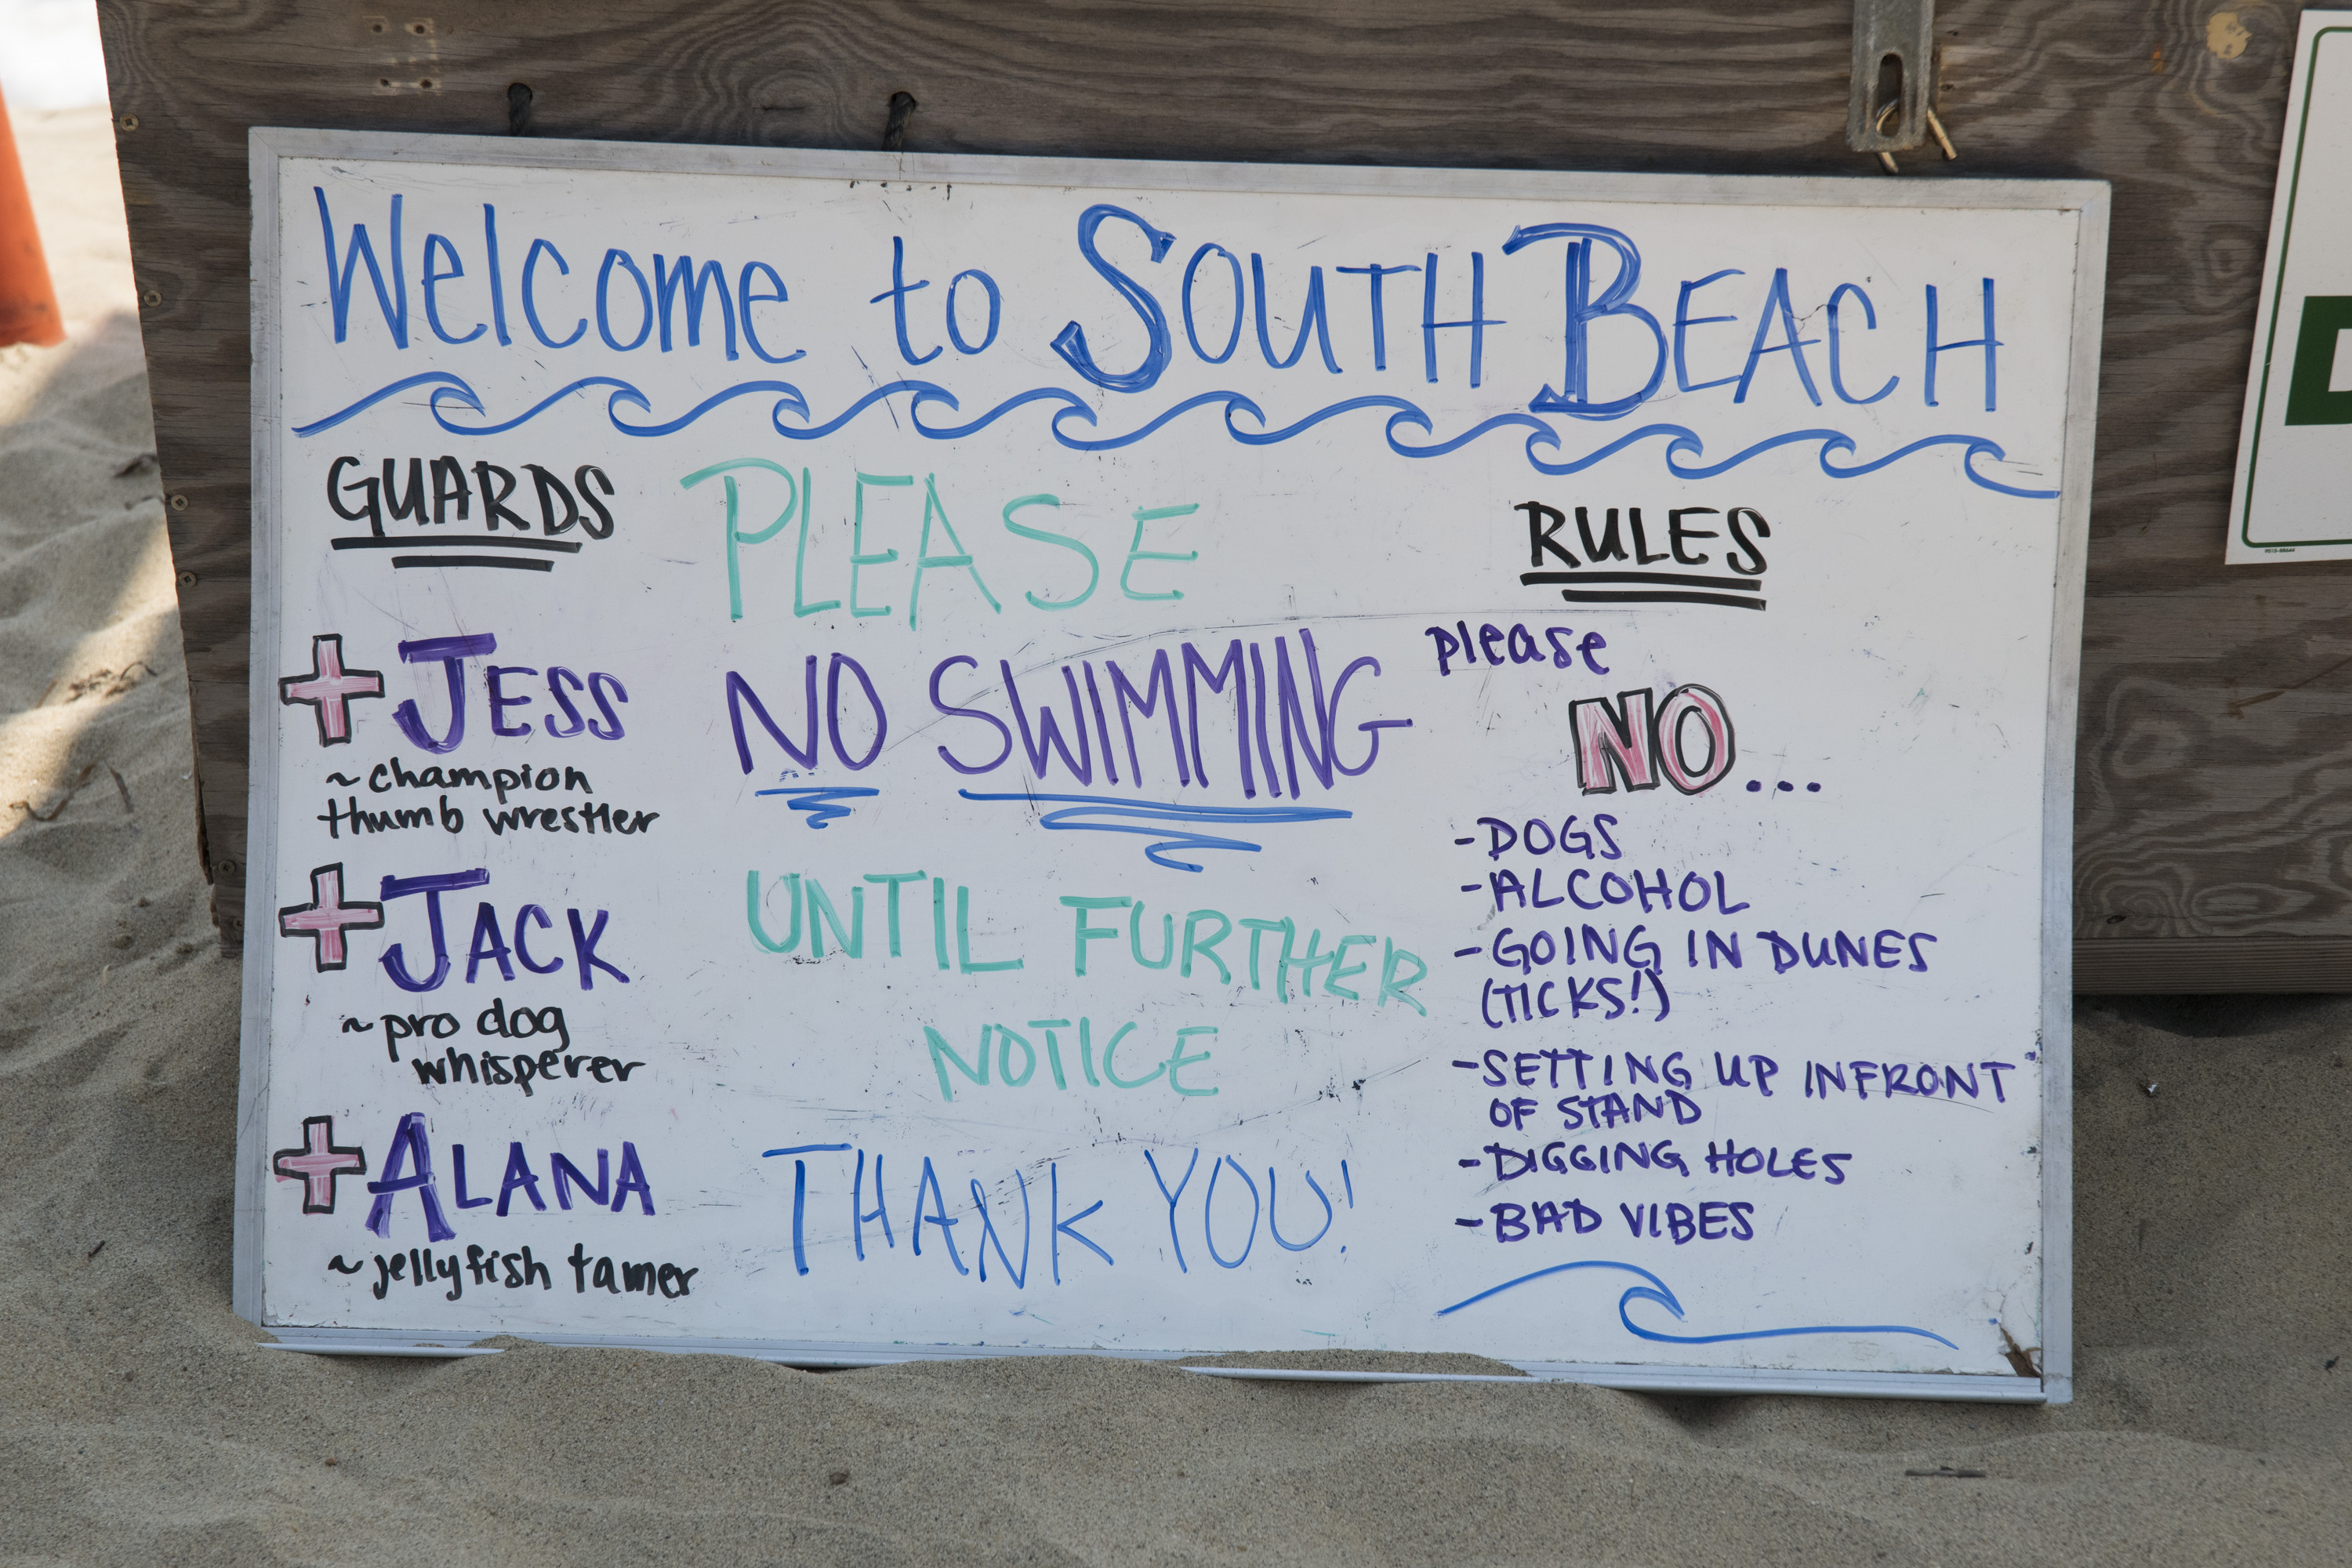 Welcome to SOUTH BEACH
GUARDS
+ JESS
~ champion
thumb wrestler
+ JACK
~ pro dog
whisperer
+ ALANA
~ jellyfish tamer
PLEASE
NO SWIMMING
UNTIL FURTHER
NOTICE
THANK YOU!
RULES
please
NO...
- DOGS
- ALCOHOL
- GOING IN DUNES
(TICKS!)
- SETTING UP INFRONT
OF STAND
- DIGGING HOLES
- BAD VIBES